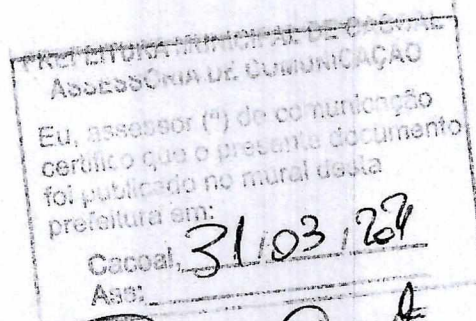 PREFEITURA MUNICIPAL DE CACOAL
ASSESSORIA DE COMUNICAÇÃO
Eu, assessor (ª) de comunicação
certifico que o presente documento
foi publicado no mural desta
prefeitura em:
Cacoal, 31/03/
Ass: